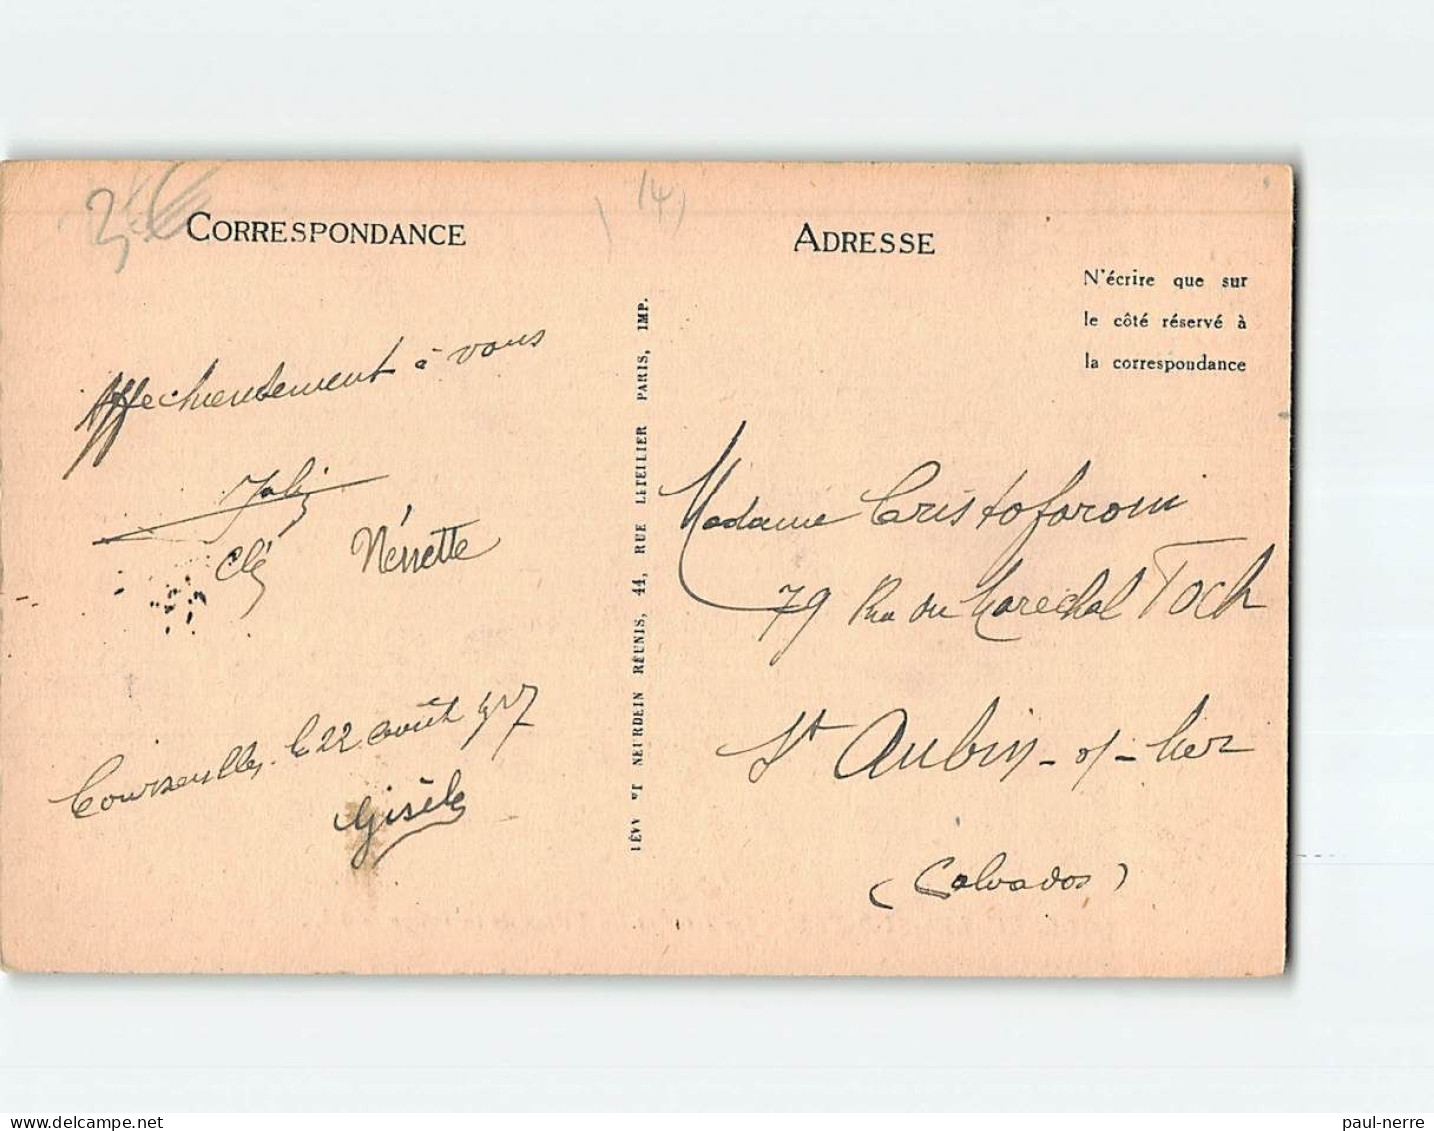 3€
(14)
CORRESPONDANCE
Affectueusement à vous
Clé Nénette
Courseulles, le 22 août 1927
Gisèle
LÉVY ET NEURDEIN RÉUNIS, 44, RUE LETELLIER PARIS, IMP.
ADRESSE
N'écrire que sur
le côté réservé à
la correspondance
Madame Cristoforoni
79 Rue du Maréchal Foch
St Aubin-s/-Mer
(Calvados)
paul-nerre